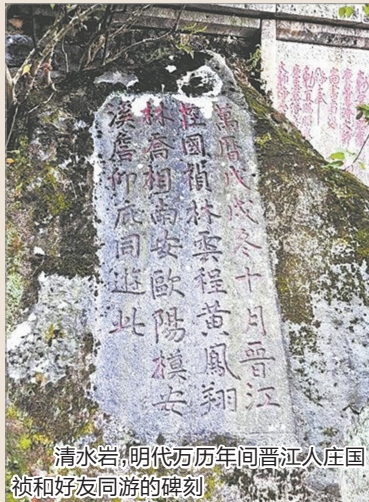 萬曆戊戌冬十月晋江
莊國禎林雲程黄鳳翔
林喬相南安歐陽模安
溪詹仰庇同遊此
清水岩,明代万历年间晋江人庄国
祯和好友同游的碑刻